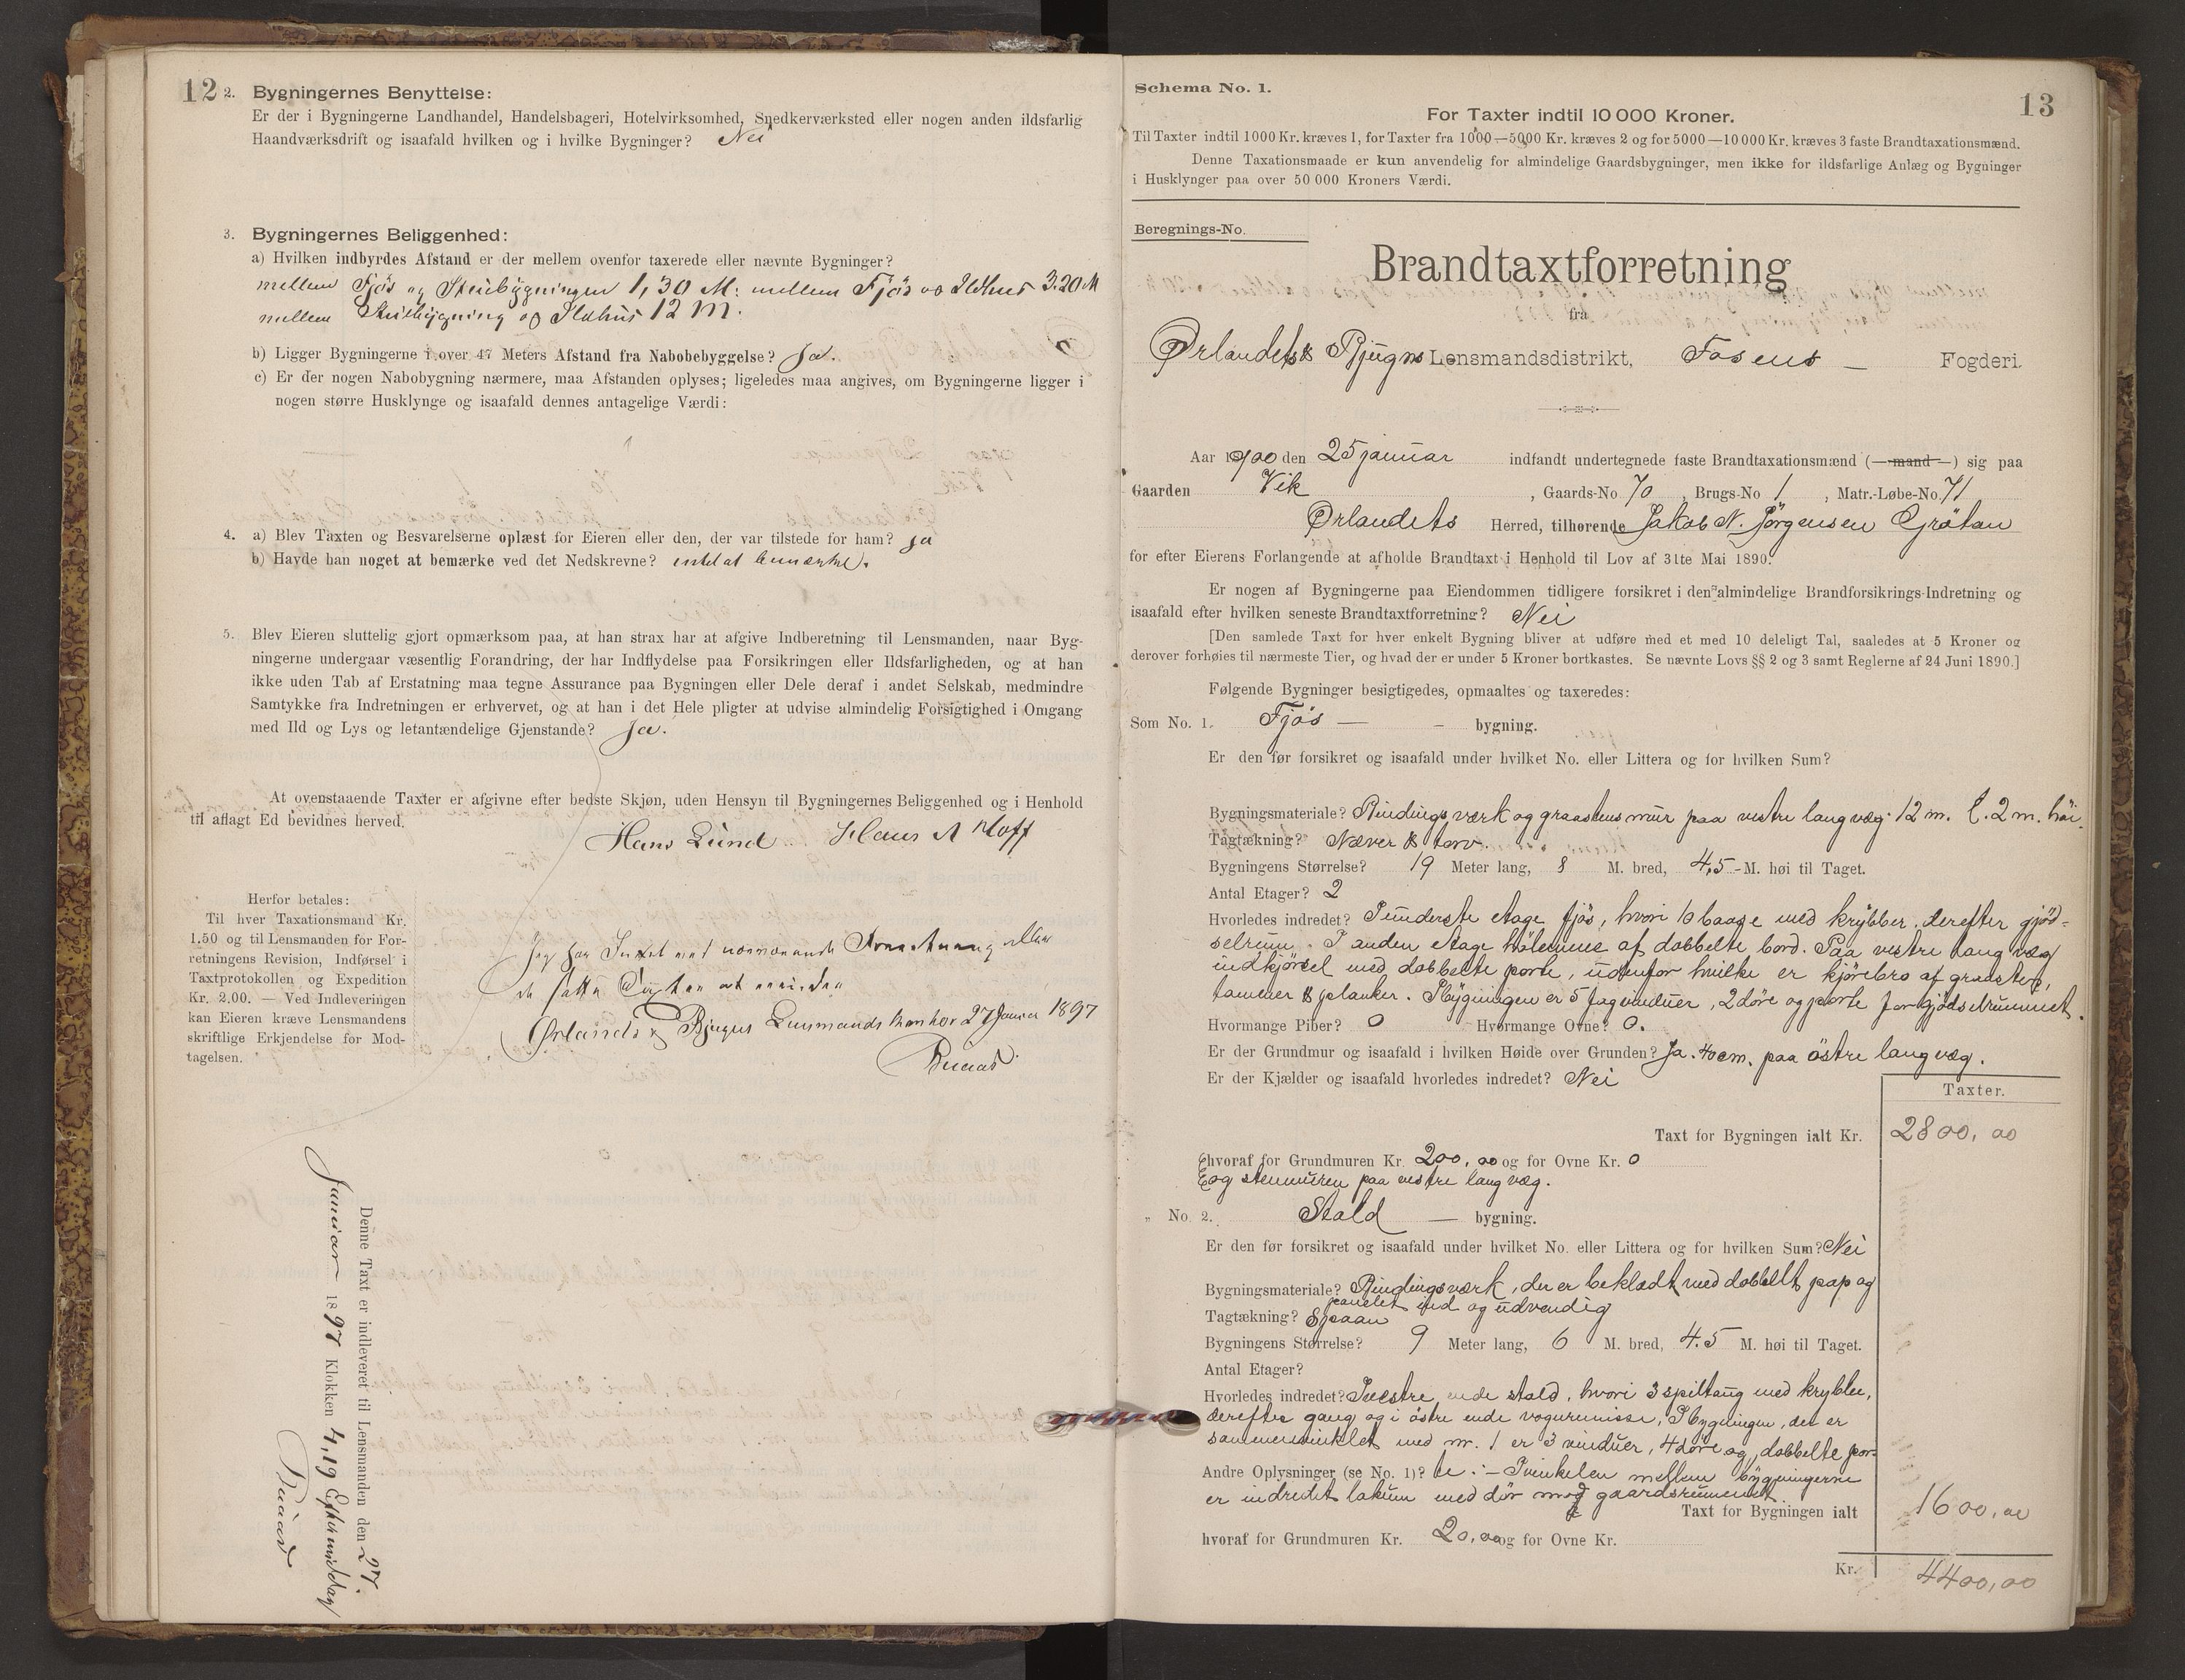 12
2. Bygningernes Benyttelse:
Er der i Bygningerne Landhandel, Handelsbageri, Hotelvirksomhed, Snedkerværksted eller nogen anden ildsfarlig
Haandværksdrift og isaafald hvilken og i hvilke Bygninger? Nei
3. Bygningernes Beliggenhed:
a) Hvilken indbyrdes Afstand er der mellem ovenfor taxerede eller nævnte Bygninger?
mellem Fjös og Steubygningen 1,30 M: mellem Fjös og Ildhus 3.20 M
mellem Steubygning og Ildhus 12 M.
b) Ligger Bygningerne i over 47 Meters Afstand fra Nabobebyggelse? Ja.
c) Er der nogen Nabobygning nærmere, maa Afstanden oplyses; ligeledes maa angives, om Bygningerne ligger i
nogen større Husklynge og isaafald dennes antagelige Værdi:
4. a) Blev Taxten og Besvarelserne oplæst for Eieren eller den, der var tilstede for ham? Ja
b) Havde han noget at bemærke ved det Nedskrevne? intet at bemærke.
5. Blev Eieren sluttelig gjort opmærksom paa, at han strax har at afgive Indberetning til Lensmanden, naar Byg-
ningerne undergaar væsentlig Forandring, der har Indflydelse paa Forsikringen eller Ildsfarligheden, og at han
ikke uden Tab af Erstatning maa tegne Assurance paa Bygningen eller Dele deraf i andet Selskab, medmindre
Samtykke fra Indretningen er erhvervet, og at han i det Hele pligter at udvise almindelig Forsigtighed i Omgang
med Ild og Lys og letantændelige Gjenstande? Ja.
At ovenstaaende Taxter er afgivne efter bedste Skjøn, uden Hensyn til Bygningernes Beliggenhed og i Henhold
til aflagt Ed bevidnes herved.
Hans Lund Klaus A Hoff
Herfor betales:
Til hver Taxationsmand Kr.
1.50 og til Lensmanden for For-
retningens Revision, Indførsel i
Taxtprotokollen og Expedition
Kr. 2.00. — Ved Indleveringen
kan Eieren kræve Lensmandens
skriftlige Erkjendelse for Mod-
tagelsen.
Jeg har Intet mod
Taxten at
Ørlands & Bjugns Lensmandskontor 27 Januar 1897
Denne Taxt er indleveret til Lensmanden den 27.
Januar 1897 Klokken 4,19 Eftermiddag
Schema No. 1.
13
For Taxter indtil 10 000 Kroner.
Til Taxter indtil 1000 Kr. kræves 1, for Taxter fra 1000—5000 Kr. kræves 2 og for 5000—10000 Kr. kræves 3 faste Brandtaxationsmænd.
Denne Taxationsmaade er kun anvendelig for almindelige Gaardsbygninger, men ikke for ildsfarlige Anlæg og Bygninger
i Husklynger paa over 50 000 Kroners Værdi.
Beregnings-No.
Brandtaxtforretning
fra
Ørlandets & Bjugns Lensmandsdistrikt, Fosens Fogderi.
Aar 1900 den 25 januar indfandt undertegnede faste Brandtaxationsmænd (—mand—) sig paa
Gaarden Vik, Gaards-No 70, Brugs-No 1, Matr.-Løbe-No 71
Ørlandets Herred, tilhørende Jakob N. Jörgensen Grötan
for efter Eierens Forlangende at afholde Brandtaxt i Henhold til Lov af 31te Mai 1890.
Er nogen af Bygningerne paa Eiendommen tidligere forsikret i den almindelige Brandforsikrings-Indretning og
isaafald efter hvilken seneste Brandtaxtforretning? Nei
[Den samlede Taxt for hver enkelt Bygning bliver at udføre med et med 10 deleligt Tal, saaledes at 5 Kroner og
derover forhøies til nærmeste Tier, og hvad der er under 5 Kroner bortkastes. Se nævnte Lovs §§ 2 og 3 samt Reglerne af 24 Juni 1890.]
Følgende Bygninger besigtigedes, opmaaltes og taxeredes:
Som No. 1. Fjös — bygning.
Er den før forsikret og isaafald under hvilket No. eller Littera og for hvilken Sum?
Bygningsmateriale? Bindingsværk og graastensmur paa vestre langvæg 12 m. l. 2 m. höi.
Tagtækning? Næver & torv.
Bygningens Størrelse? 19 Meter lang, 8 M. bred, 4,5 M. høi til Taget.
Antal Etager? 2
Hvorledes indredet? I underste etage fjös, hvori 10 baase med krybber, derefter gjöd-
selrum. I anden etage af dobbelte bord. Paa vestre lang væg
indkjörsel med dobbelte porte, udenfor hvilke er kjörebro af graasten,
tömmer & planker. I bygningen er 5 fag vinduer, 2 döre og porte for gjödselrummet.
Hvormange Piber? 0 Hvormange Ovne? 0.
Er der Grundmur og isaafald i hvilken Høide over Grunden? Ja. 40 cm. paa östre langvæg.
Er der Kjælder og isaafald hvorledes indredet? Nei
Taxter.
Taxt for Bygningen ialt Kr. 2800,00
hvoraf for Grundmuren Kr. 200,00 og for Ovne Kr. 0
og stenmuren paa vestre langvæg.
„ No. 2. Stald — bygning.
Er den før forsikret og isaafald under hvilket No. eller Littera og for hvilken Sum? Nei
Bygningsmateriale? Bindingsværk, der er beklædt med dobbelt pap og
panelet ind og udvendig
Tagtækning? Spaan
Bygningens Størrelse? 9 Meter lang, 6 M. bred, 4.5 M. høi til Taget.
Antal Etager?
Hvorledes indredet? I vestre ende stald, hvori 3 spiltaug med krybbe,
derefter gang og i östre ende vognremisse, I bygningen, der er
sammenvinklet med nr. 1 er 3 vinduer, 4 döre og dobbelte por-
Andre Oplysninger (se No. 1)? te. — I vinkelen mellem bygningerne
er indredet lokum med dör mod gaardsrummet
Taxt for Bygningen ialt 1600,00
hvoraf for Grundmuren Kr. 20,00 og for Ovne Kr.
Kr. 4400,00